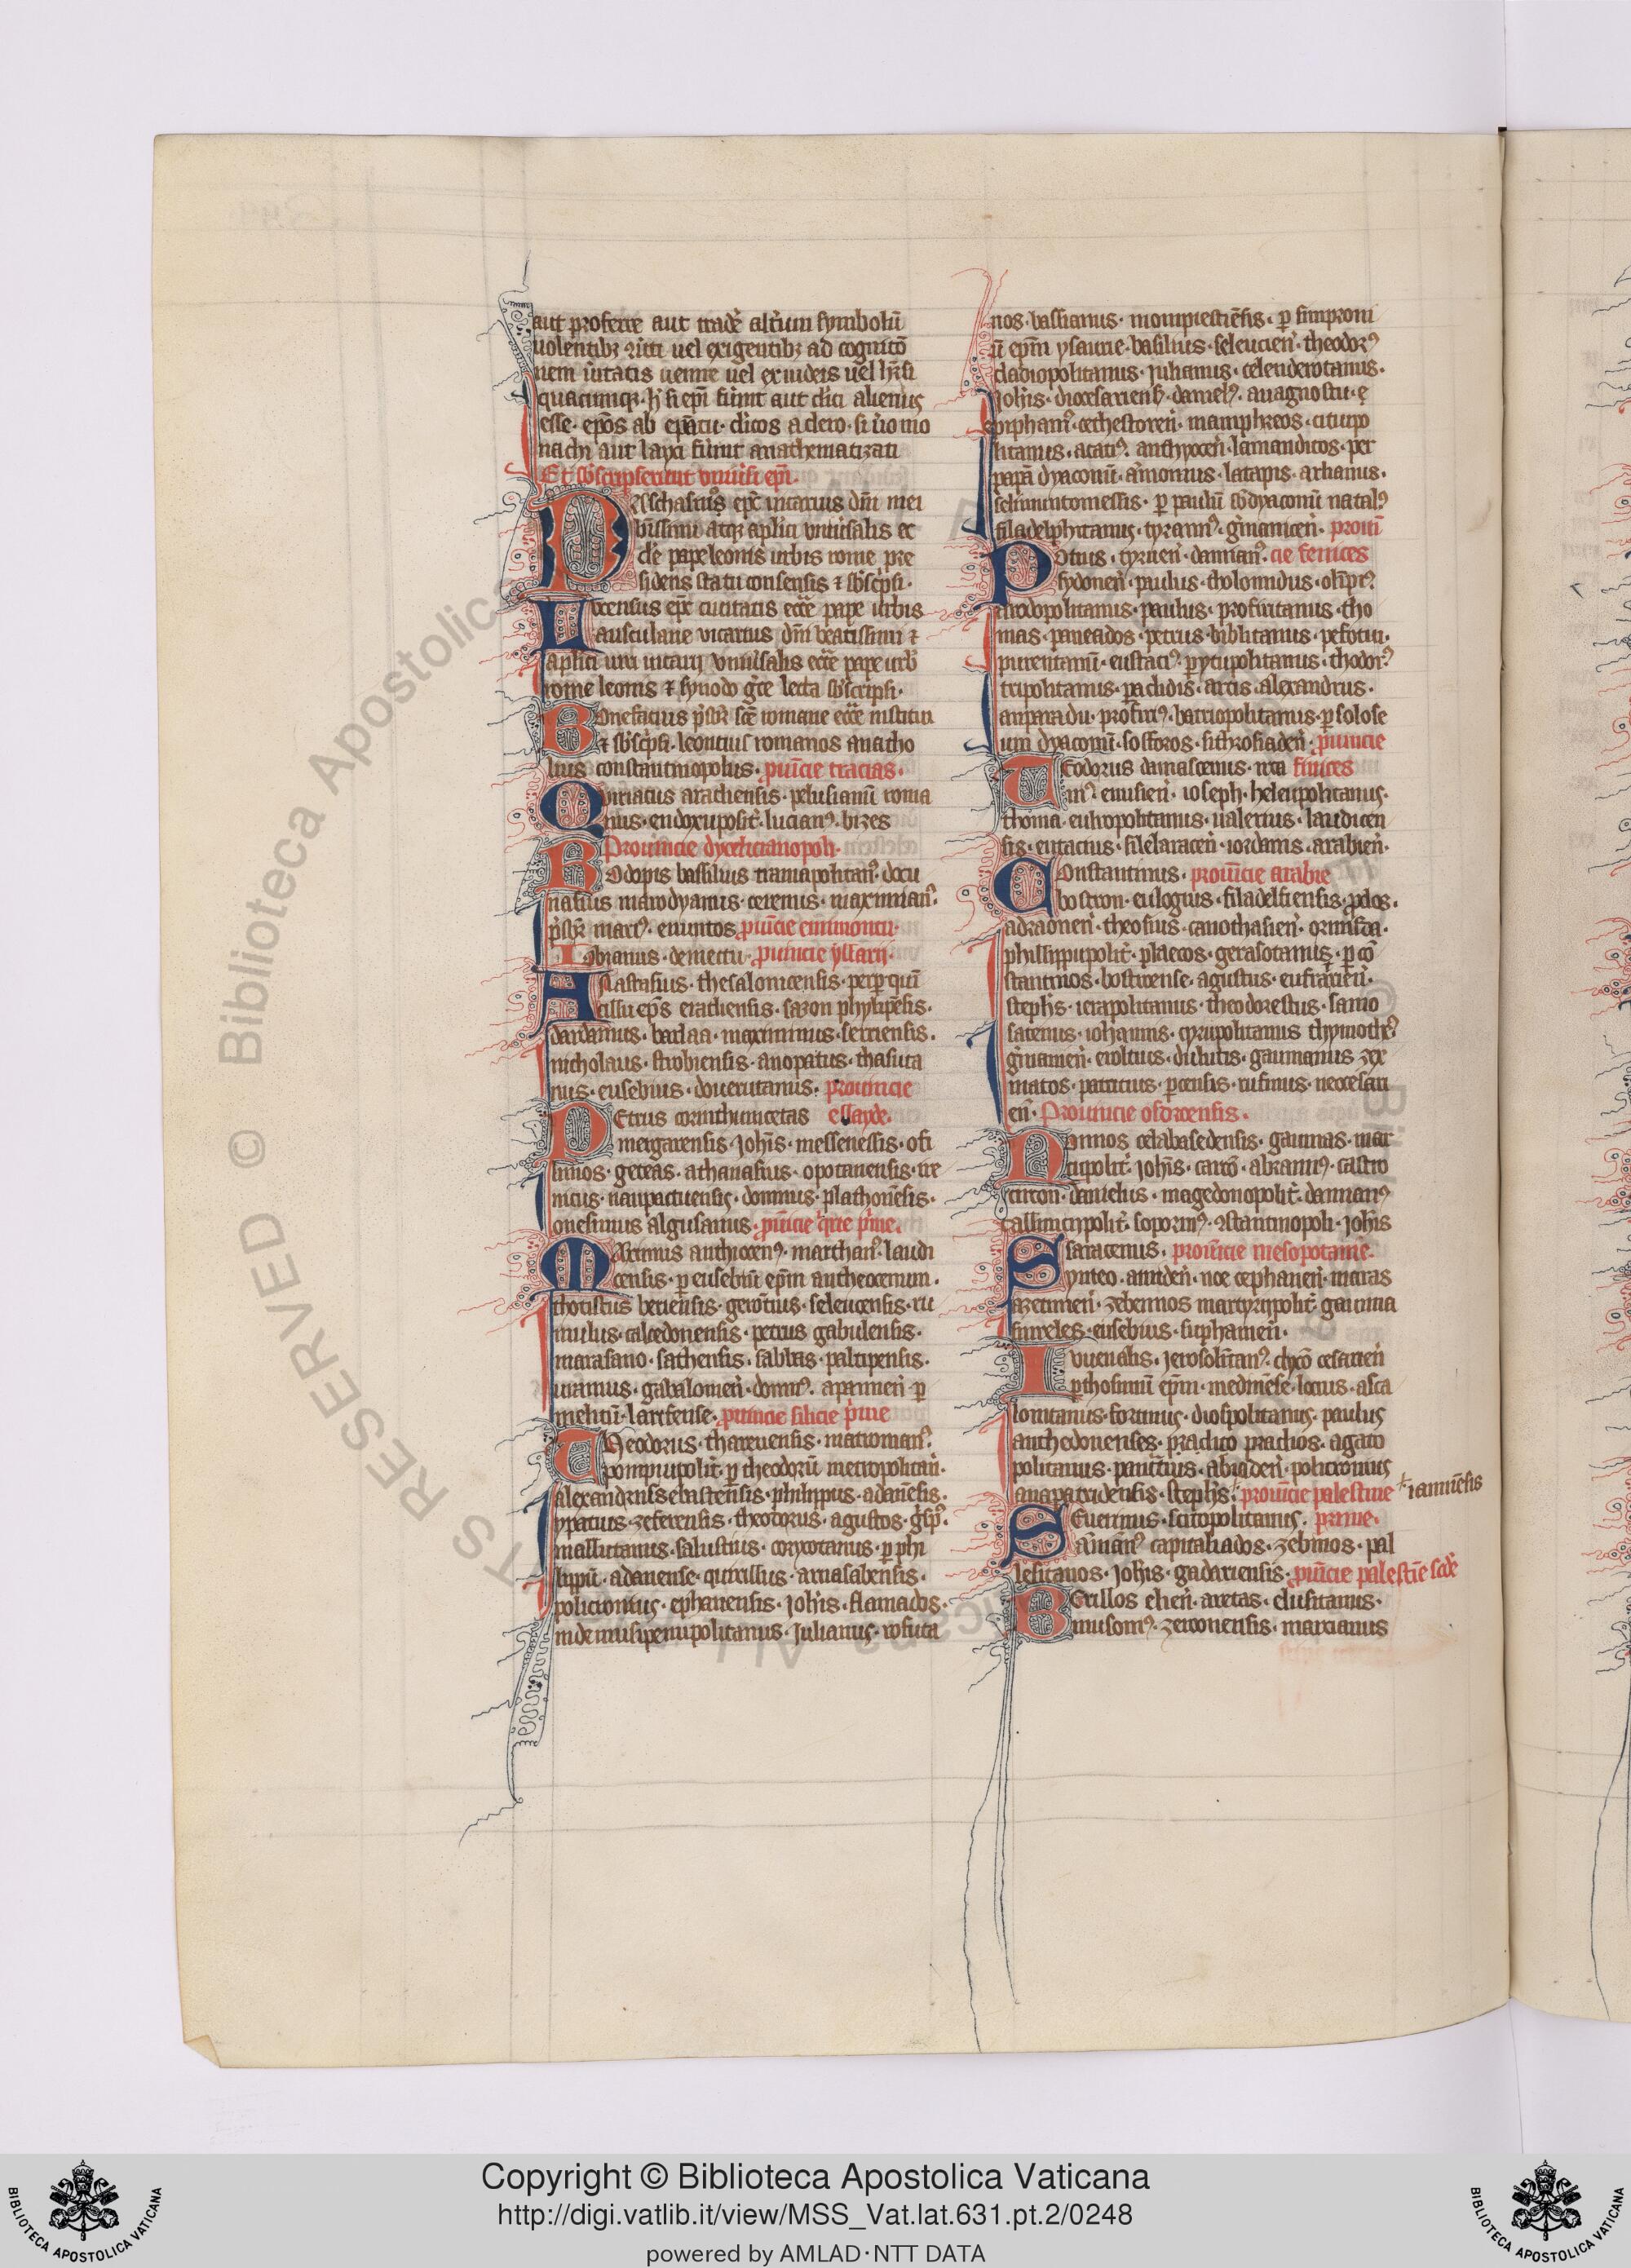 aut proferre aut tradẽ alt'um symbolũ
uolentibꝫ ꝯuti uel exigentibꝫ ad cognitõ
nem u'itatis uenire uel ex iudeis uel hr̃si
quacumqꝫ. hii si epĩ fũint aut clici alienus
esse. epõs ab epatu. clicos a clero. si uo mo
nachi aut layci fũint anathematizati
Et sb'scripserunt uniũsi epĩ.
Paschasius epc̃ uicarius dñi mei
bissimi atqꝫ aplici uniũsalis ec
cl'e pape leonis urbis rome pre
sidens statui consensis ⁊ sb'sc'psi.
Lucensius epc̃ ciuitatis ecc̃e pape urbis
ausculane vicarius dñi beatissimi ⁊
aplici uiri uniũsalis ecc̃e pape urb'
rome leonis ⁊ synodo gr̃e lecta sb'scripsi.
Bonefacius p'sbr̃ sc̃e romane ecc̃e nistitui
⁊ sb'sc'psi. leontius romanos anatho
lius constantinopolus. puĩcie tracias.
Quiriacus arachensis. pelusianũ roma
nus. endoxuposit'. lucianꝰ. bizes
Prouincie dyocelicianopoli.
Bodopis bassilius traniapolitanꝰ. docu
natius marodyanus. ceremis. maximianꝰ.
p'sbr̃ marcꝰ. enuntos puĩcie eminontii.
Iobianus. demectu. puincie yllarii.
Anastasius. thesalonicensis. per quĩ
cillũ epõs erachensis. sazon phylipẽsis.
dardanus. barlaa. maximinus. serriensis.
nicholaus. strobiensis. anopatus. thasura
nus. eusebius. doueritanus. prouincie
Petrus corinthunicetas ellayde.
mergarensis. Johis. messenessis. ofi
simos. gereas. athanasius. opotanensis. ire
nicus. naupactuensis. domnus. plathonẽsis.
onesimus algusanus. puĩcie c'rite p'me.
Maximus anthiocenꝰ. marchanꝰ. laudi
censis. ꝑ eusebiũ epm̃ antheocenum.
thotistus beriensis. gerõtius. seleucensis. ru
mulus. calcedonensis. petrus gabulensis.
marasano. sathensis. sabbas. paltipensis.
uramus. gabalomeñ. domnꝰ. apanmeñ ꝑ
melitũ. larrsense. puincie silicie p'me
Theodorus. tharauensis. matromanꝰ.
pompiupolit'. ꝑ theodorũ metropolitañ.
alexandrus sebastensis. philippus. adanẽsis.
ypatius. zeferensis. theodorus. agustos. g'spꝰ.
mallutanus. salustius. coryxotanus. ꝑ phi
lippũ. adanense. quirillus. arnasabensis.
policronius. ephanensis. Johis. flamados.
indemusipenupolitanus. Julianus. rosuta
nos. bassianus. mompiestiẽsis. ꝑ simproni
ũ epm̃ ysaurie. basilius. seleucien. theodorꝰ
cladiopolitanus. iulianus. celenderotanus.
Johis. diocesarienß. danielꝰ. anagnostu. e
epiphanꝰ. cethestoreñ. mamphreos. citurpo
litanus. acatiꝰ. anthyoceñ. lamandicos. per
papã dyaconũ. amonius. latapis. arhanus.
selinuntomessis. ꝑ paulũ sb'dyaconũ natalꝰ.
filadelphitanus. tyrannꝰ. g'maniceñ. prouĩ
Potius. tyrueñ. damianꝰ. cie fenices
sydoneñ. paulus. tholomidus. olimpꝰ
theodopolitanus. paulus. profiritanus. tho
mas. paneados. petrus. biblitanus. pefotin.
purentanũ. eustaciꝰ. ꝑytupolitanus. thodorꝰ
tripolitanus. paclidis. artis. alexandrus.
anparadu. profiriꝰ. batriopolitanus. ꝑ solose
um dyaconũ. fosforos. sithrosiadeñ. puincie
Teodorus damascenus. ucta finices
mꝰ. emisieñ. ioseph. heleupolitanus.
thoma. euhropolitanus. ualerius. laudicen
sis. eutactus. silelaraceñ. iordanis. arabieñ.
Constantinus. prouĩcie arabie
bostron. eulogius. filadelfiensis. pdos.
adraoneñ. theosius. canothasieñ. ormisda.
phillippupolit'. placcos. gerasotanus. ꝑ cõ
stantinos. bostrense. agustus. eufratieñ.
stephs. ierapolitanus. theodorestus. samo
satenus. iohannis. cyrupolitanus thymothꝰ
g'manieñ. euoltius. dulutis. gaumanus zex
matos. patritius. ꝑcensis. rufinus. neocesari
eñ. Prouincie osdrocensis.
Nonnos celabasedensis. gaunas. mar
cupolit'. Johis. carrõ. abramꝰ. castro
circon. danielus. magedonopolit'. damianꝰ
callinicipolit'. soporinꝰ. ꝯstantinopoli. Johis
saracenus. prouĩcie mesopotamie.
Synteo. amideñ. noe cephaneñ. maras
azetineñ. zebennos martyripolit'. gauma
sureles. eusebius. suphameñ.
Iuuenalis. Jerosolitanꝰ. clycõ cesarieñ
ꝑ thosimũ epm̃. medinẽse. locius. asca
lonitanus. fortinus. diospolitanus. paulus
anthedonenses. pradico pradios. agato
politanus. pancratius. abiladeñ. policronius
anapatridensis. stephs. prouĩcie palestine iamnẽsis
Seuerinus. scitopolitanus. prime.
Amianꝰ capitaliados. zebinos. pal
lesitanos. Johis. gadariensis. puĩcie palestiẽ scd'e
Berillos elieñ. aretas. elusitanus.
musomꝰ. zerronensis. marcianus
Copyright © Biblioteca Apostolica Vaticana
http://digi.vatlib.it/view/MSS_Vat.lat.631.pt.2/0248
powered by AMLAD·NTT DATA
BIBLIOTECA APOSTOLICA VATICANA
BIBLIOTECA APOSTOLICA VATICANA